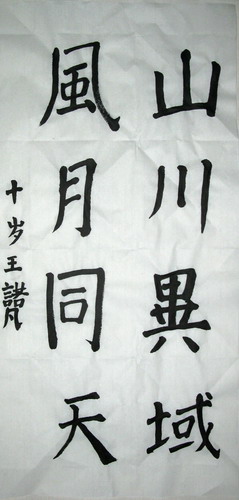 山川異域
風月同天
十岁王